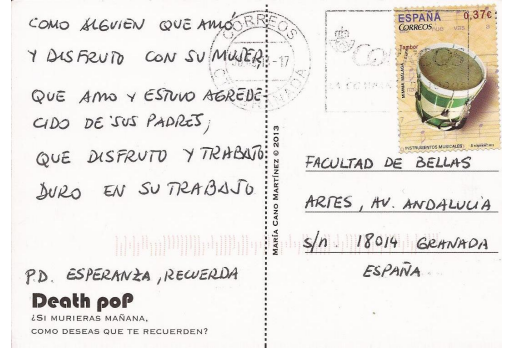 COMO ALGUIEN QUE AMÓ
Y DISFRUTO CON SU MUJER
QUE AMO Y ESTUVO AGREDE-
CIDO DE SUS PADRES,
QUE DISFRUTO Y TRABAJO
DURO EN SU TRABAJO
P.D. ESPERANZA, RECUERDA
Death poP
¿SI MURIERAS MAÑANA,
COMO DESEAS QUE TE RECUERDEN?
MARÍA CANO MARTÍNEZ © 2013
CORREOS
ESPAÑA 0,37€
CORREOS
Tambor
INSTRUMENTOS MUSICALES
FACULTAD DE BELLAS
ARTES, AV. ANDALUCÍA
S/n. 18014 GRANADA
ESPAÑA